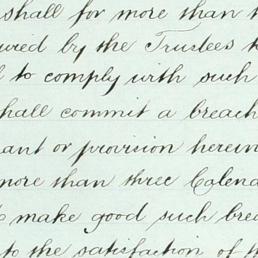 shall for more than
by the Trustees
to comply with such
shall commit a breach
or provision herein
more than three Calend
make good such brea
to the satisfaction of